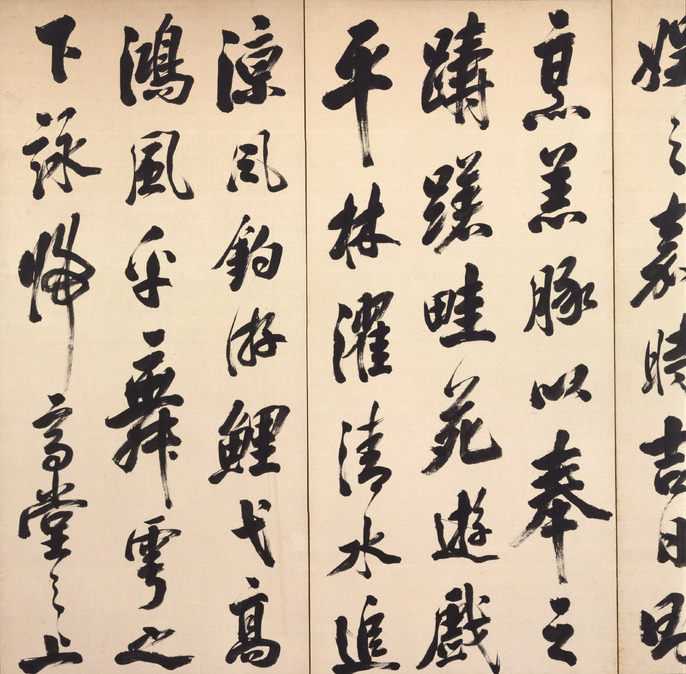 娯之嘉時吉日則
烹羔豚以奉之
躊躇畦苑遊戯
平林濯清水追
涼風釣游鯉弋高
鴻風乎舞雩之
下詠帰高堂之上